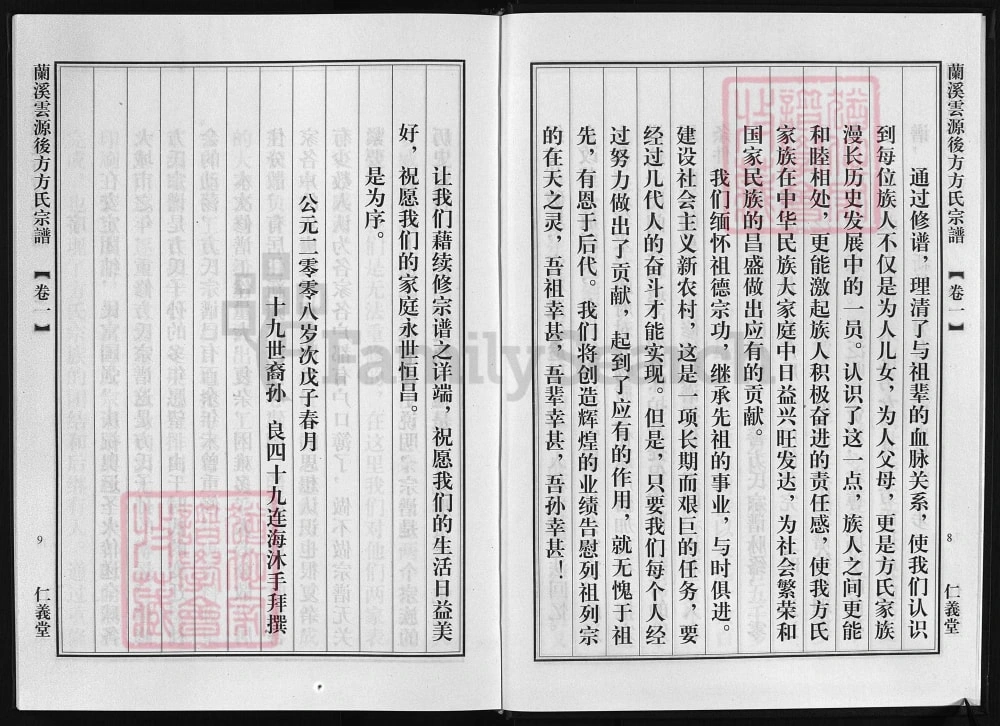 蘭溪雲源後方方氏宗譜
【卷一】
8
仁義堂
通过修谱，理清了与祖辈的血脉关系，使我们认识
到每位族人不仅是为人儿女，为人父母，更是方氏家族
漫长历史发展中的一员。认识了这一点，族人之间更能
和睦相处，更能激起族人积极奋进的责任感，使我方氏
家族在中华民族大家庭中日益兴旺发达，为社会繁荣和
国家民族的昌盛做出应有的贡献。
我们缅怀祖德宗功，继承先祖的事业，与时俱进。
建设社会主义新农村，这是一项长期而艰巨的任务，要
经过几代人的奋斗才能实现。但是，只要我们每个人经
过努力做出了贡献，起到了应有的作用，就无愧于祖
先，有恩于后代。我们将创造辉煌的业绩告慰列祖列宗
的在天之灵，吾祖幸甚，吾辈幸甚，吾孙幸甚！
让我们藉续修宗谱之详端，祝愿我们的生活日益美
好，祝愿我们的家庭永世恒昌。
是为序。
公元二零零八岁次戊子春月
十九世裔孙 良四十九连海沐手拜撰
蘭溪雲源後方方氏宗譜
【卷一】
9
仁義堂
FamilySearch